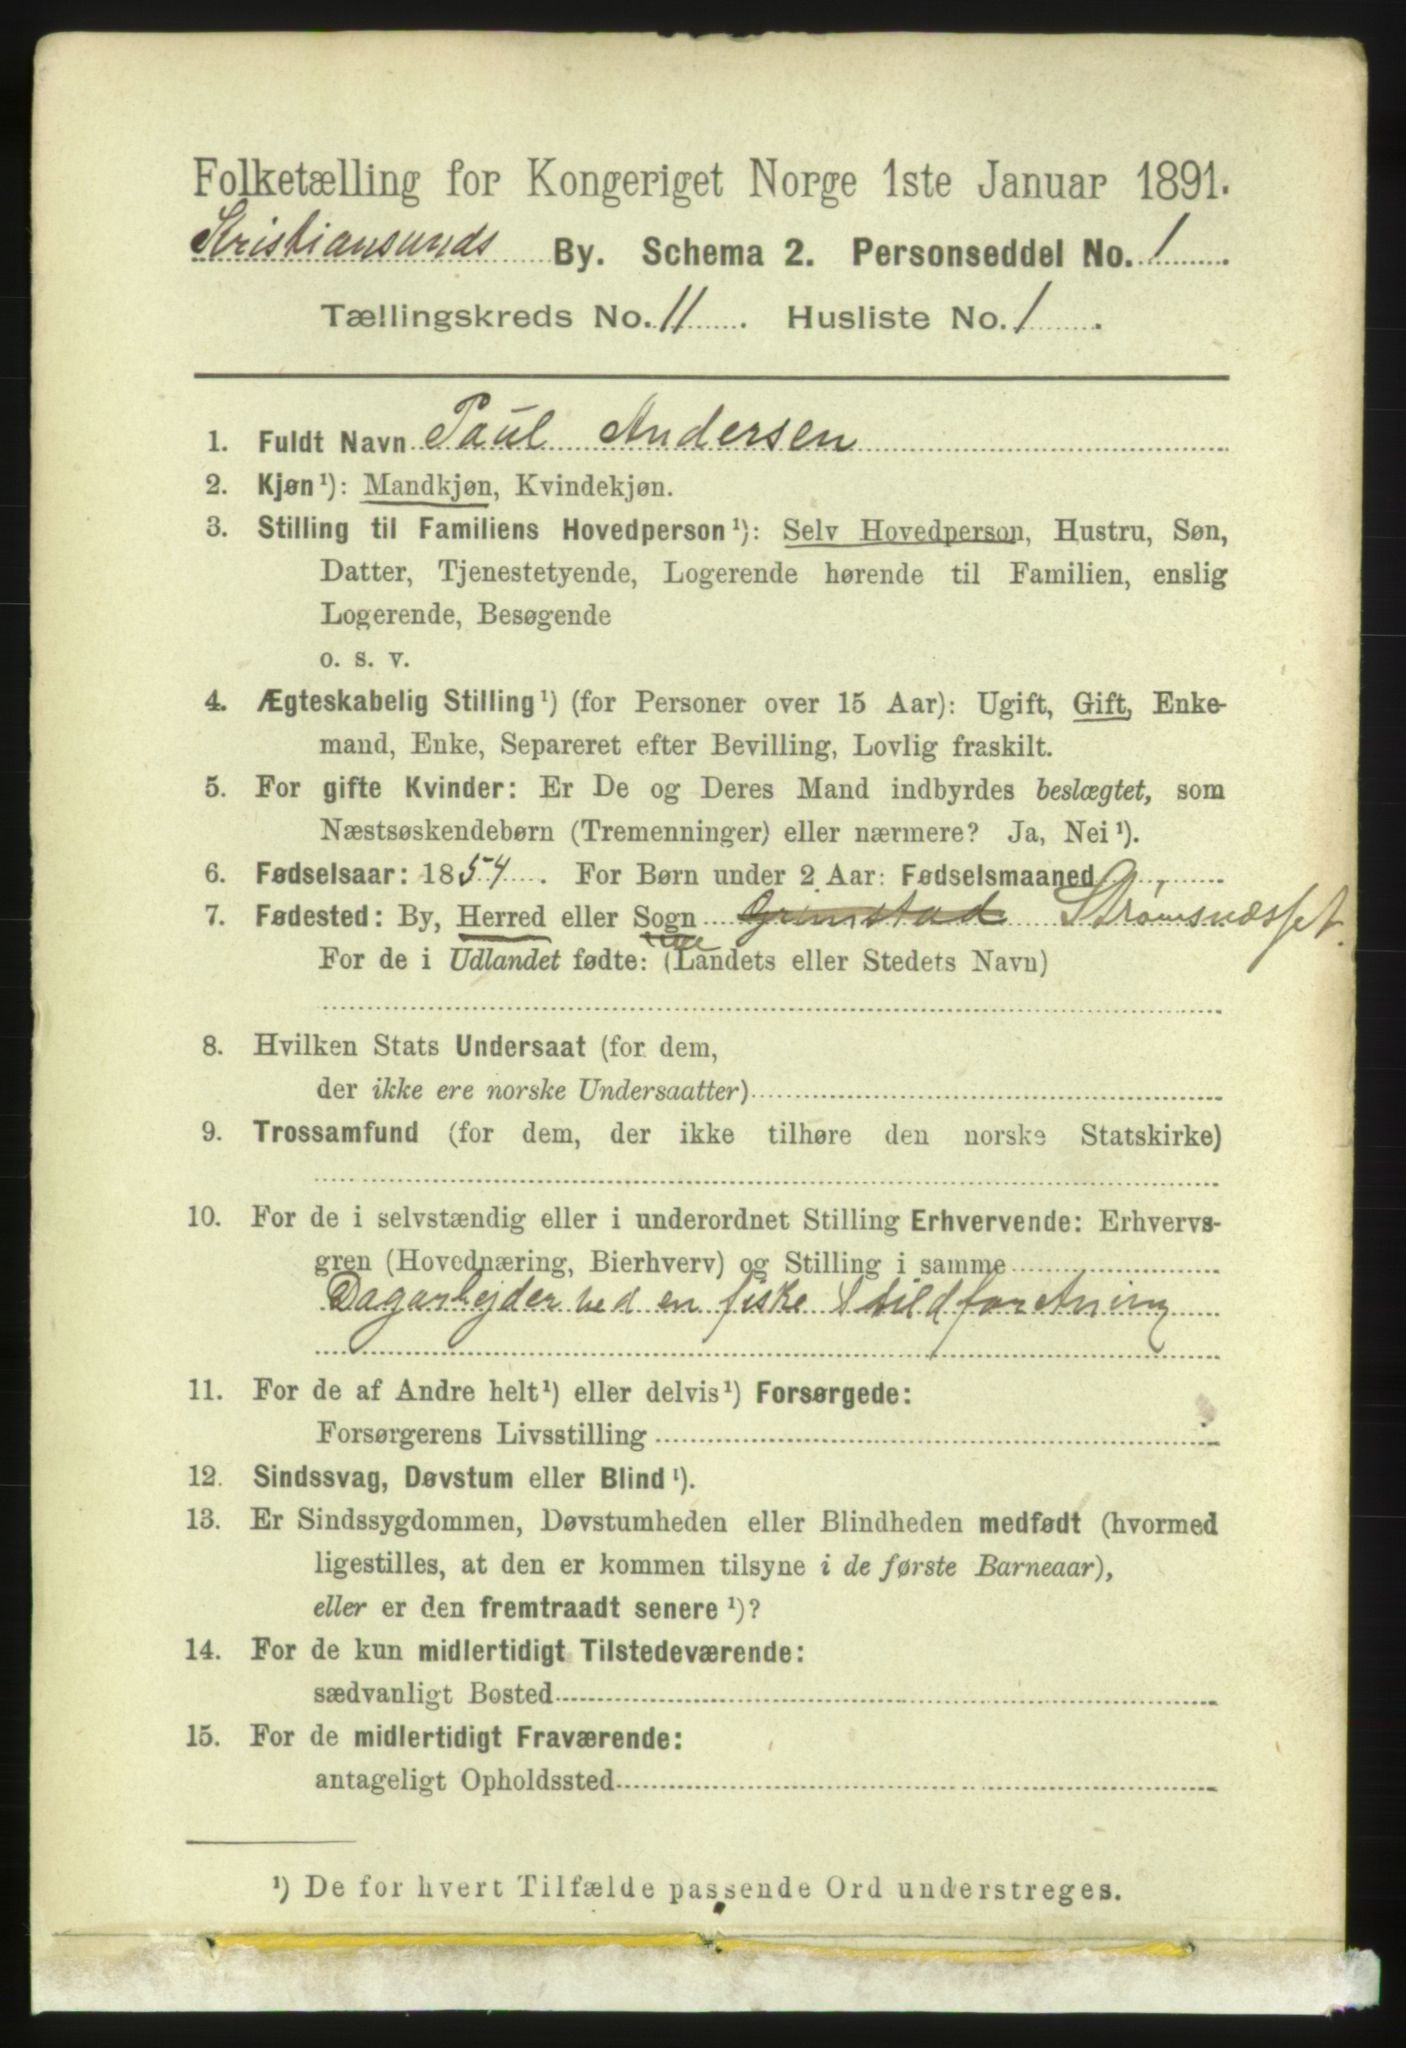 Folketælling for Kongeriget Norge 1ste Januar 1891.
Kristiansunds By. Schema 2. Personseddel No. 1
Tællingskreds No. 11. Husliste No. 1.
1. Fuldt Navn Paul Andersen
2. Kjøn¹): Mandkjøn, Kvindekjøn.
3. Stilling til Familiens Hovedperson¹): Selv Hovedperson, Hustru, Søn,
Datter, Tjenestetyende, Logerende hørende til Familien, enslig
Logerende, Besøgende
o. s. v.
4. Ægteskabelig Stilling¹) (for Personer over 15 Aar): Ugift, Gift, Enke-
mand, Enke, Separeret efter Bevilling, Lovlig fraskilt.
5. For gifte Kvinder: Er De og Deres Mand indbyrdes beslægtet, som
Næstsøskendebørn (Tremenninger) eller nærmere? Ja, Nei¹).
6. Fødselsaar: 1854. For Børn under 2 Aar: Fødselsmaaned
7. Fødested: By, Herred eller Sogn Grimstad Strømsnæsset.
For de i Udlandet fødte: (Landets eller Stedets Navn)
8. Hvilken Stats Undersaat (for dem,
der ikke ere norske Undersaatter)
9. Trossamfund (for dem, der ikke tilhøre den norske Statskirke)
10. For de i selvstændig eller i underordnet Stilling Erhvervende: Erhvervs-
gren (Hovednæring, Bierhverv) og Stilling i samme
Dagarbejder ved en fiske & sildforretning
11. For de af Andre helt¹) eller delvis¹) Forsørgede:
Forsørgerens Livsstilling
12. Sindssvag, Døvstum eller Blind¹).
13. Er Sindssygdommen, Døvstumheden eller Blindheden medfødt (hvormed
ligestilles, at den er kommen tilsyne i de første Barneaar),
eller er den fremtraadt senere¹)?
14. For de kun midlertidigt Tilstedeværende:
sædvanligt Bosted
15. For de midlertidigt Fraværende:
antageligt Opholdssted
¹) De for hvert Tilfælde passende Ord understreges.